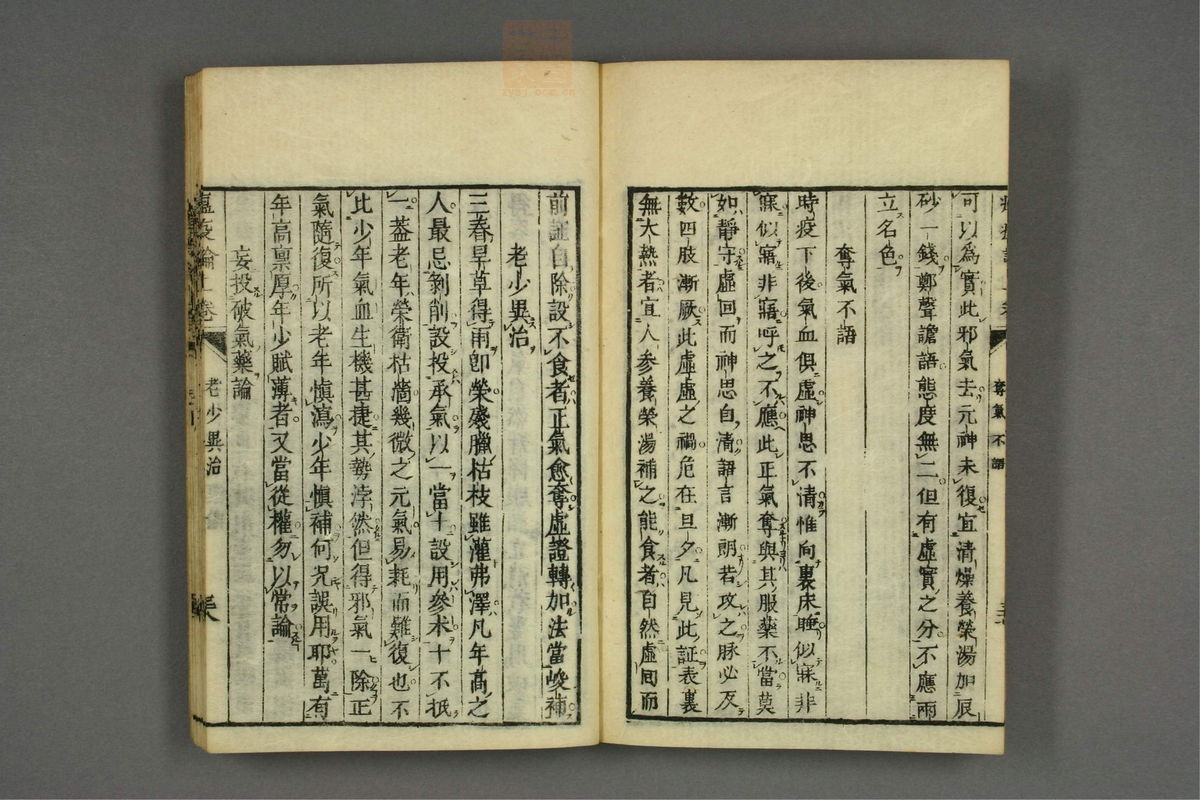 可以爲實此邪氣去元神未復宜清燥養榮湯加辰
砂一錢鄭聲譫語態度無二但有虛實之分不應兩
立名色
奪氣不語
時疫下後氣血俱虛神思不清惟向裏床睡似寐非
寐似寤非寤呼之不應此正氣奪與其服藥不當莫
如靜守虛回而神思自清語言漸朗若攻之脉必反
數四肢漸厥此虛虛之禍危在旦夕凡見此証表裏
無大熱者宜人參養榮湯補之能食者自然虛回而
奪氣不語
前証自除設不食者正氣愈奪虛證轉加法當峻補
老少異治
三春旱草得雨卽榮殘臘枯枝雖灌弗澤凡年高之
人最忌剝削設投承氣以一當十設用參朮十不抵
一蓋老年榮衛枯濇幾微之元氣易耗而難復也不
比少年氣血生機甚捷其勢浡然但得邪氣一除正
氣隨復所以老年慎瀉少年慎補何况誤用耶萬有
年高禀厚年少賦薄者又當從權勿以常論
妄投破氣藥論
瘟疫論上卷
老少異治
zysj.com.cn